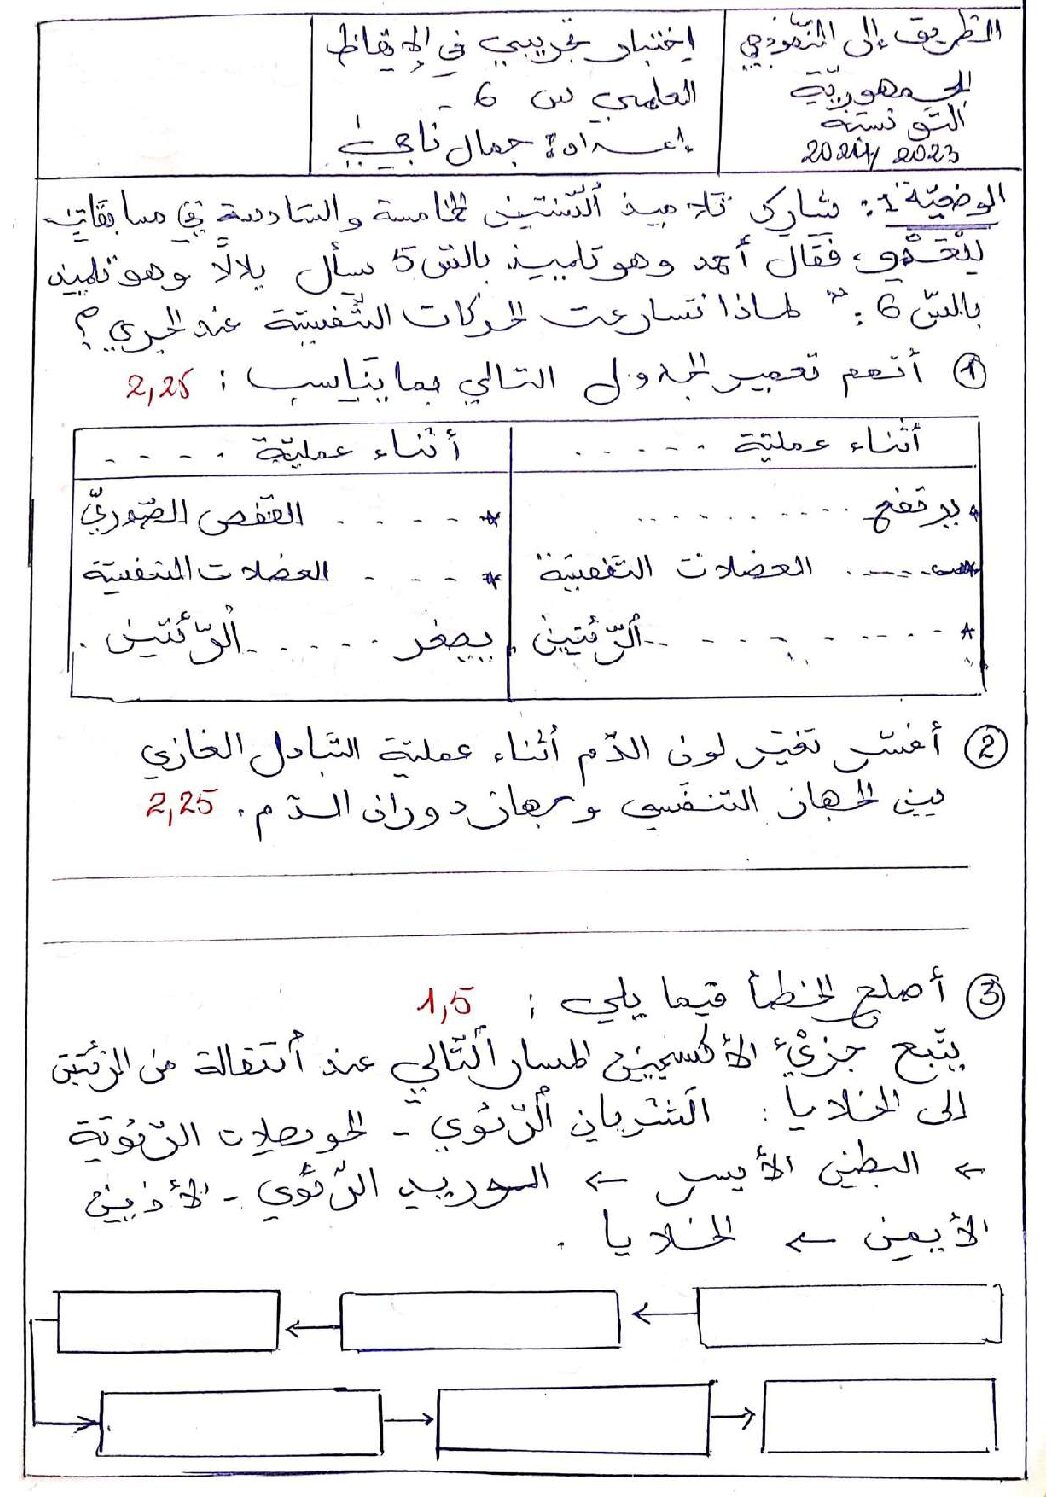 الطريق إلى النّموذجي
الجمهوريّة
التونسيّة
2023 / 2024
اختبار تجريبي في الإيقاظ
العلمي س 6 -
إعداد: جمال ناجي
الوضعيّة 1: شارك تلاميذ السّنتين الخامسة والسّادسة في مسابقات
للعَدْوِ، فقال أحمد وهو تلميذ بالسّ 5 سأل بلالًا وهو تلميذ
بالسّ 6: " لماذا تسارعت الحركات التّنفسيّة عند الجري؟
1 أتمم تعمير الجدول التالي بما يناسب: 2,25
أثناء عمليّة . . . . .
أثناء عمليّة . . . . .
* يرتفع . . . . . . . . .
* . . . . . القفص الصّدريّ
* . . . . . العضلات التّنفسيّة
* . . . . العضلات التنفسيّة
* . . . . . . . . . . الرّئتين
* يصغر . . . . . . الرّئتين .
2 أفسّر تغيّر لون الدّم أثناء عمليّة التّبادل الغازي
بين الجهاز التنفسي وجهاز دوران الدّم. 2,25
3 أصلح الخطأ فيما يلي : 1,5
يتّبع جزيء الأكسجين المسار التّالي عند انتقاله من الرّئتين
إلى الخلايا : الشريان الرّئوي - الحويصلات الرّئويّة
← البطين الأيسر ← الوريد الرّئوي - الأذين
الأيمن ← الخلايا .